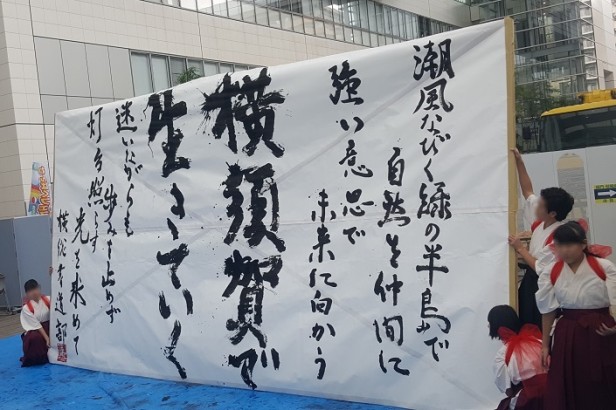 潮風なびく緑の半島で
自然を仲間に
強い意志で
未来に向かう
横須賀で
生きていく
迷いながらも
歩みを止めず
灯台照らす
光を求めて
書道部